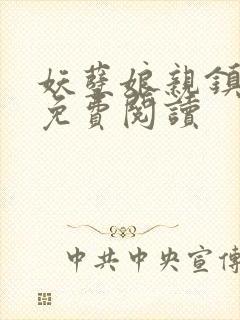 妖孽娘親鎮
免費閱讀
中共中央宣傳